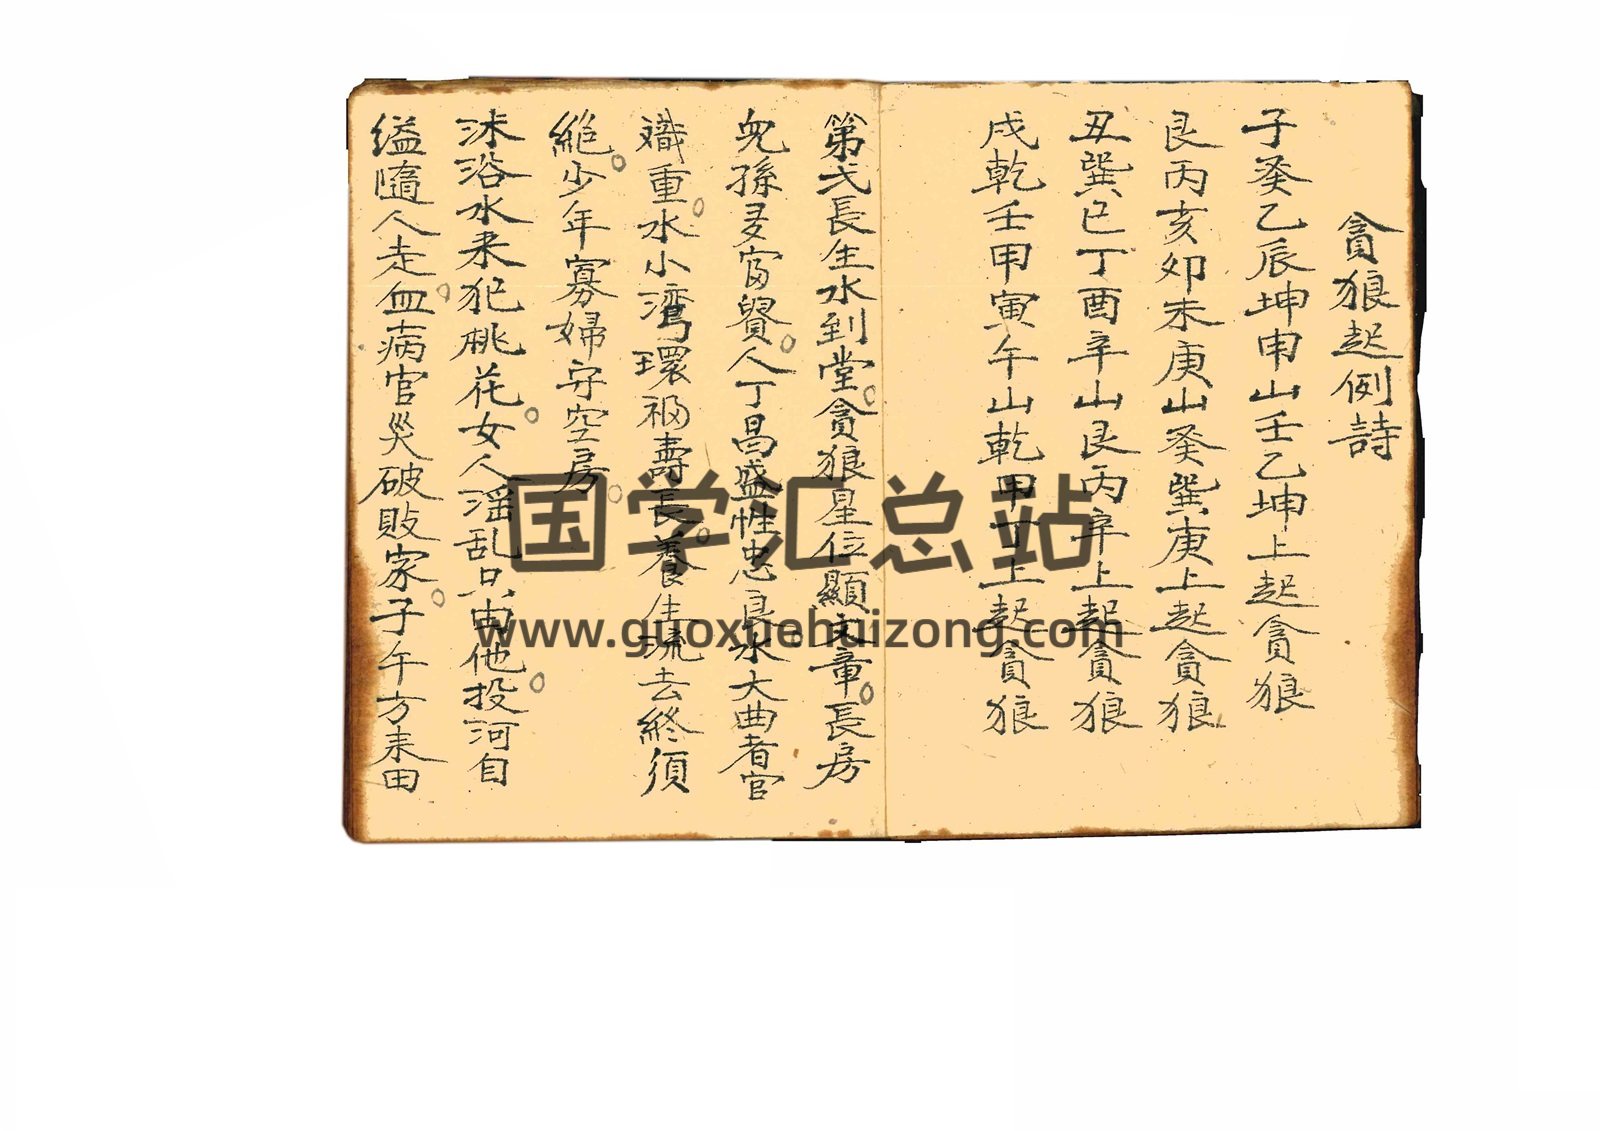 貪狼起例詩
子癸乙辰坤申山壬乙坤上起貪狼
艮丙亥卯未庚山癸巽庚上起貪狼
丑巽巳丁酉辛山艮丙辛上起貪狼
戌乾壬甲寅午山乾甲丁上起貪狼
第弍長生水到堂。貪狼星位顯文章。長房
兒孫多富貴。人丁昌盛性忠良。水大曲者官
職重。水小灣環福壽長。養生流去終須
絕。少年寡婦守空房。
沐浴水来犯桃花。女人滛乱只由他。投河自
縊隨人走。血病官災破敗家。子午方来田
国学汇总站
www.guoxuehuizong.com